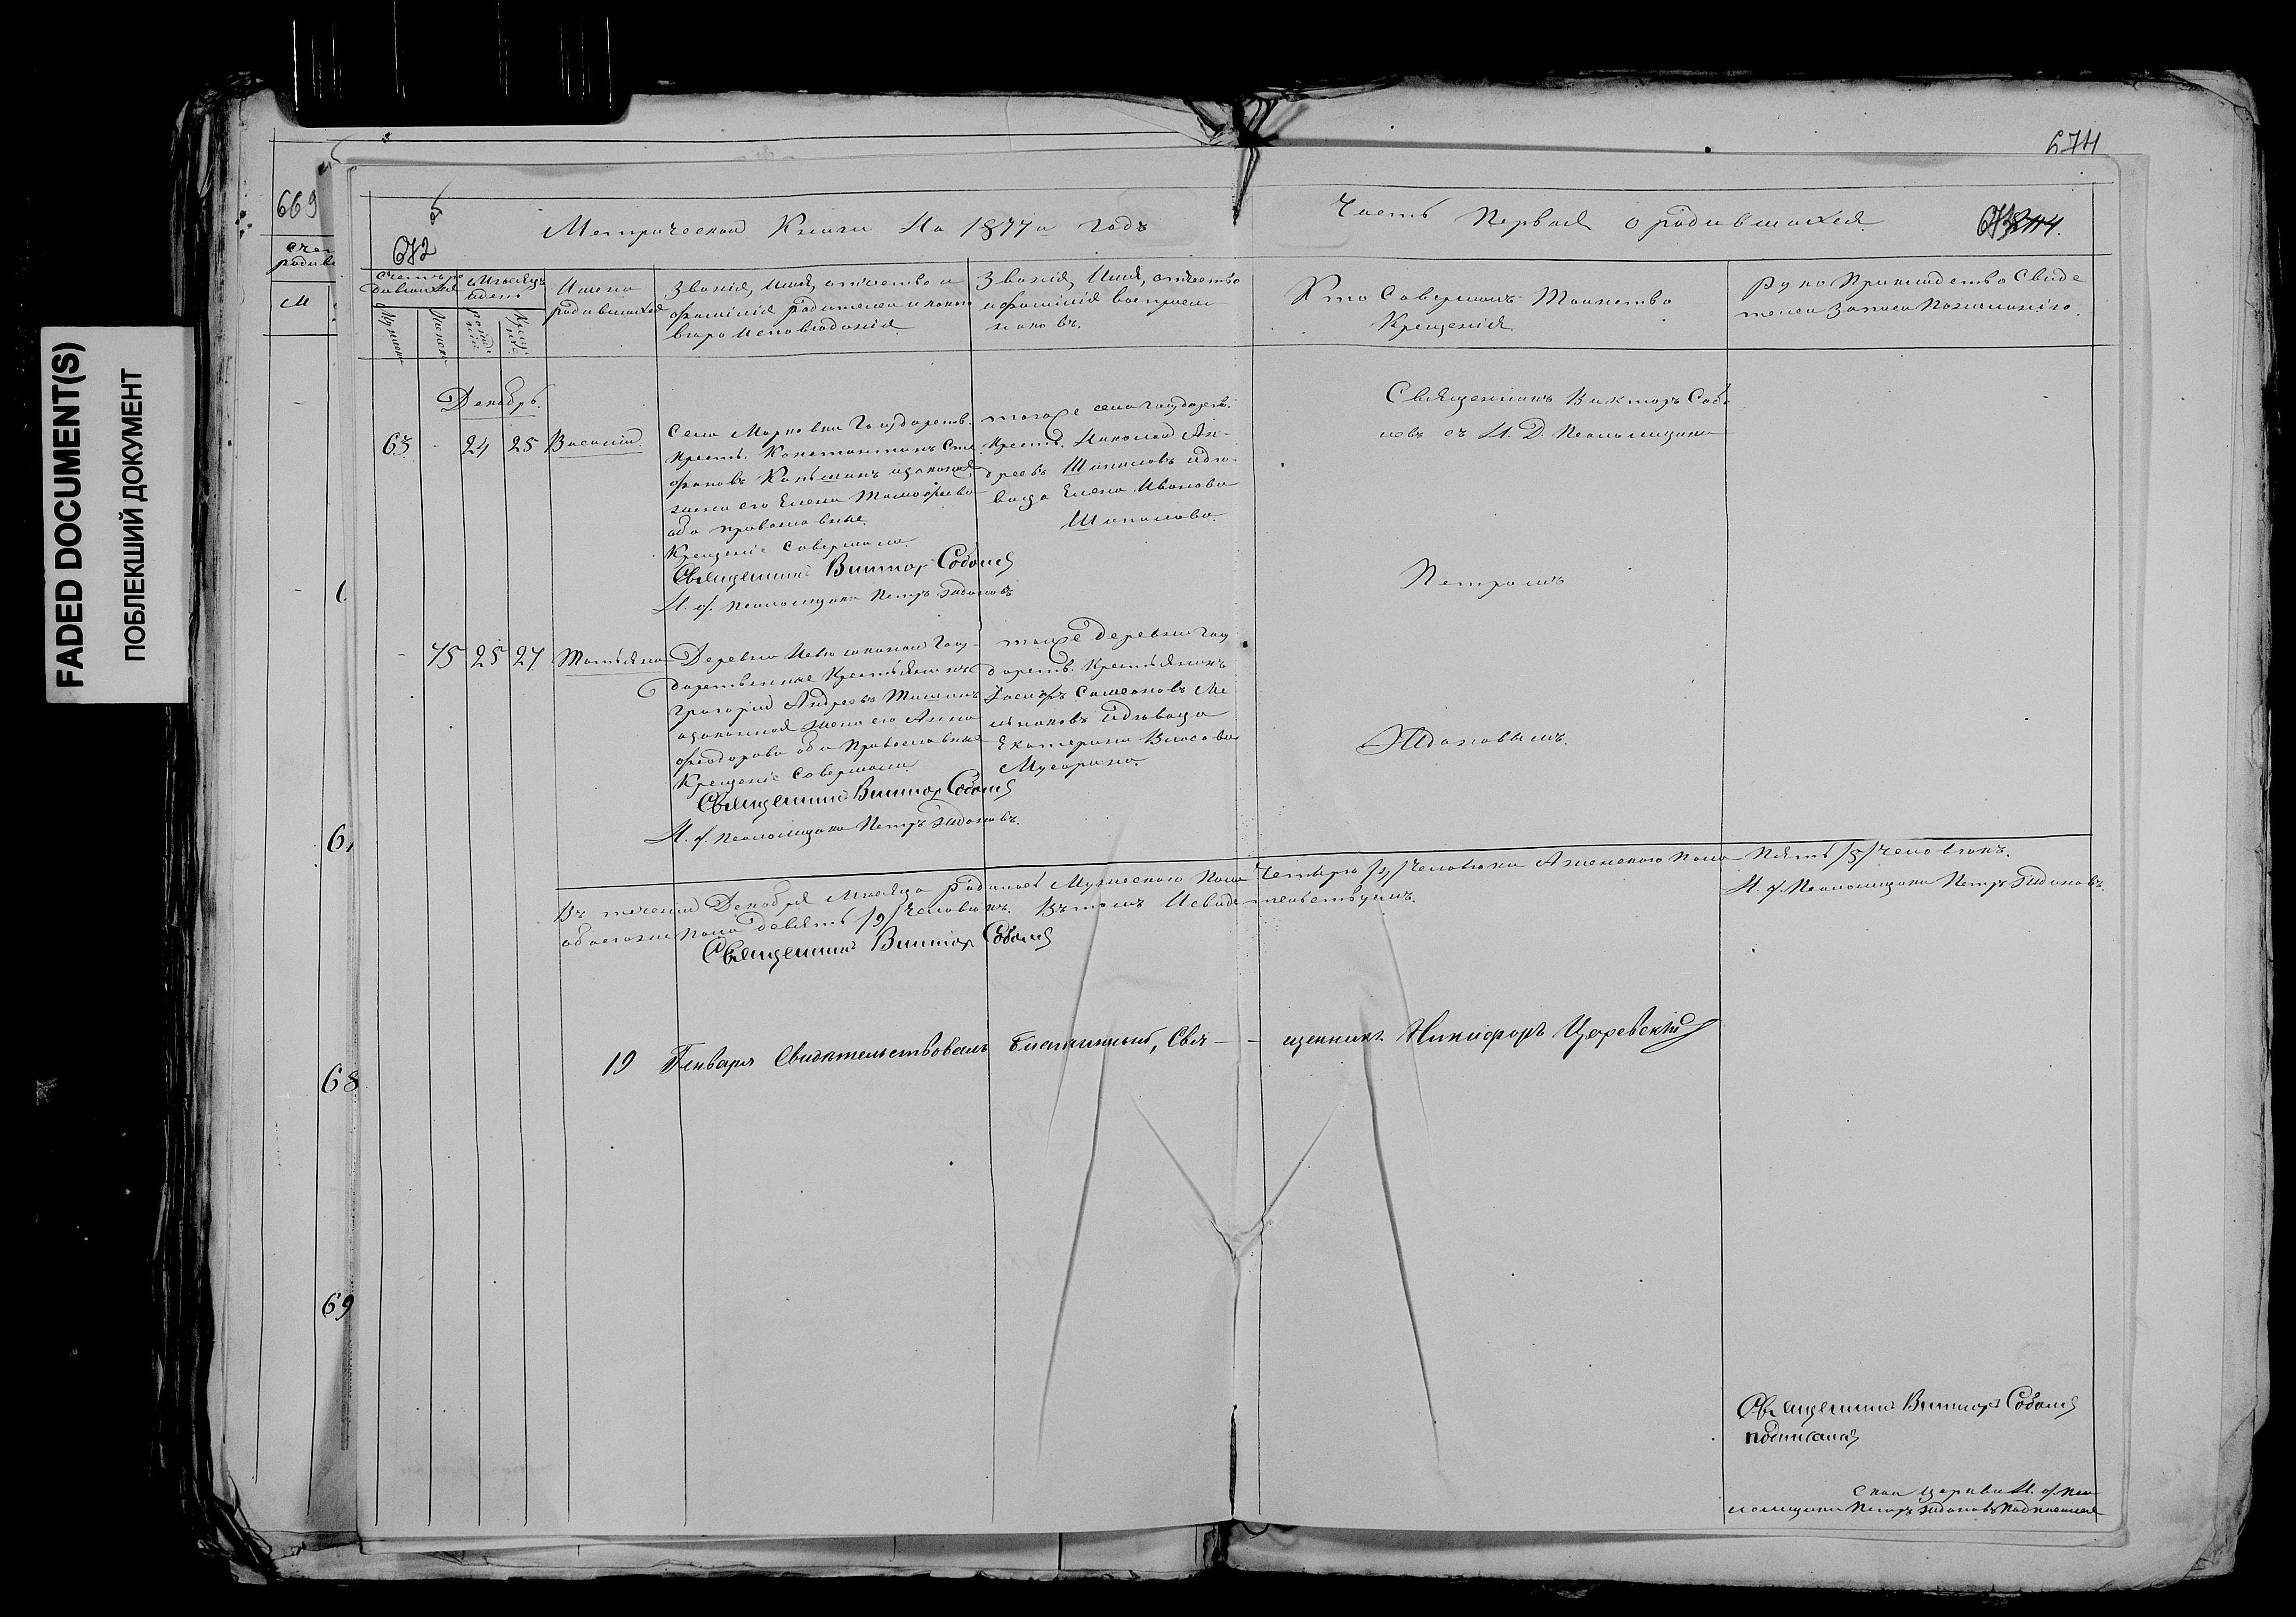 FADED DOCUMENT(S)
ПОБЛЕКШИЙ ДОКУМЕНТ
674
669
672
Метрической Книги На 1877й годъ
Часть Первая о родившихся
Счетъ ро
дившихся
Мѣсяцъ
и день
Имена
родившихся
Званія, Имя, отчество и
фамилія родителей и какого
вѣроисповѣданія
Званія, Имя, отчество
и фамилія воспріем
никовъ.
Кто Совершалъ Таинство
Крещенія
Рукоприкладство Свиде
телей записи По желанію.
М
Декабрь.
63 - 24 25 Василій.
Села Марковки Государств.
Крест. Константинъ Сте
фановъ и законная
жена его Елена Тимофѣева
оба православные.
Крещеніе Совершали
Священникъ Викторъ Соболевъ
И. д. Псаломщика Петръ Ждановъ
тогоже села Государств.
Крест. Николай Ан-
дреевъ Шапиловъ и дѣ-
вица Елена Иванова
Шапилова.
Священникъ Викторъ Собо
левъ съ И. Д. Псаломщика
Петромъ
Ждановымъ.
- 75 25 27 Татьяна
Деревни Госу-
дарственные Крестьянинъ
Григорій Андреевъ
и законная жена его Анна
Феодорова оба Православные
Крещеніе Совершали
Священникъ Викторъ Соболевъ
И. д. Псаломщика Петръ Ждановъ.
тойже деревни Госу
дарств. Крестьянинъ
Симеоновъ
и дѣвица
Екатерина Власова
Мусорина.
Въ теченіи Декабря Мѣсяца родилось Мужескаго Пола Четыре /4/ Человѣка А женскаго Пола Пять /5/ Человѣкъ.
обоегожъ пола девять /9/ Человѣкъ. Въ томъ И свидѣтельствуемъ.
Священникъ Викторъ Соболевъ
И. д. Псаломщика Петръ Ждановъ.
19 Генваря Свидѣтельствовалъ благочинный, Свя-
-щенникъ Никифоръ Царевскій
68
69
Священникъ Викторъ Соболевъ
подписался
церкви И. д. Пса
ломщика Петръ Ждановъ Подписался